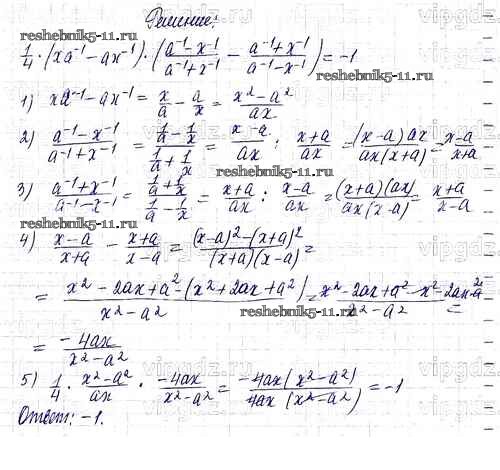 Решение:
reshebnik5-11.ru
vipgdz.ru
1/4 · (xa⁻¹ - ax⁻¹) · ((a⁻¹ - x⁻¹)/(a⁻¹ + x⁻¹) - (a⁻¹ + x⁻¹)/(a⁻¹ - x⁻¹)) = -1
reshebnik5-11.ru
1) xa⁻¹ - ax⁻¹ = x/a - a/x = (x² - a²)/(ax)
2) (a⁻¹ - x⁻¹)/(a⁻¹ + x⁻¹) = (1/a - 1/x)/(1/a + 1/x) = (x - a)/(ax) : (x + a)/(ax) = ((x - a) ax)/(ax(x + a)) = (x - a)/(x + a)
3) (a⁻¹ + x⁻¹)/(a⁻¹ - x⁻¹) = (1/a + 1/x)/(1/a - 1/x) = (x + a)/(ax) : (x - a)/(ax) = ((x + a)(ax))/(ax(x - a)) = (x + a)/(x - a)
reshebnik5-11.ru
4) (x - a)/(x + a) - (x + a)/(x - a) = ((x - a)² - (x + a)²)/((x + a)(x - a)) =
vipgdz.ru
= (x² - 2ax + a² - (x² + 2ax + a²))/(x² - a²) = (x² - 2ax + a² - x² - 2ax - a²)/(x² - a²) =
reshebnik5-11.ru
= (-4ax)/(x² - a²)
vipgdz.ru
5) 1/4 · (x² - a²)/(ax) · (-4ax)/(x² - a²) = (-4ax(x² - a²))/(4ax(x² - a²)) = -1
Ответ: -1.
reshebnik5-11.ru